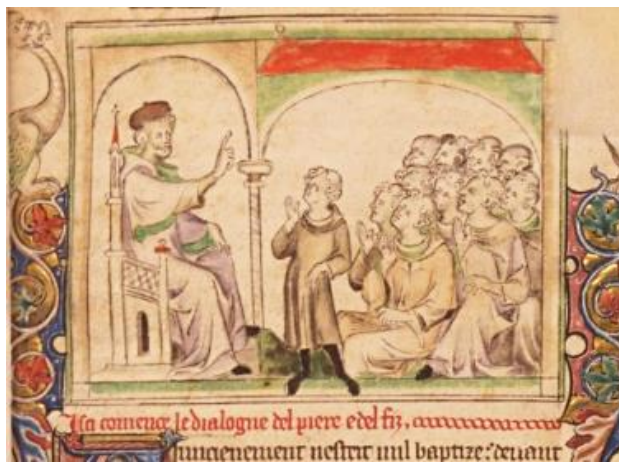 Ista comence le dialogue del piere e del fiz.
Auncienement nesteit nul baptize: deuant